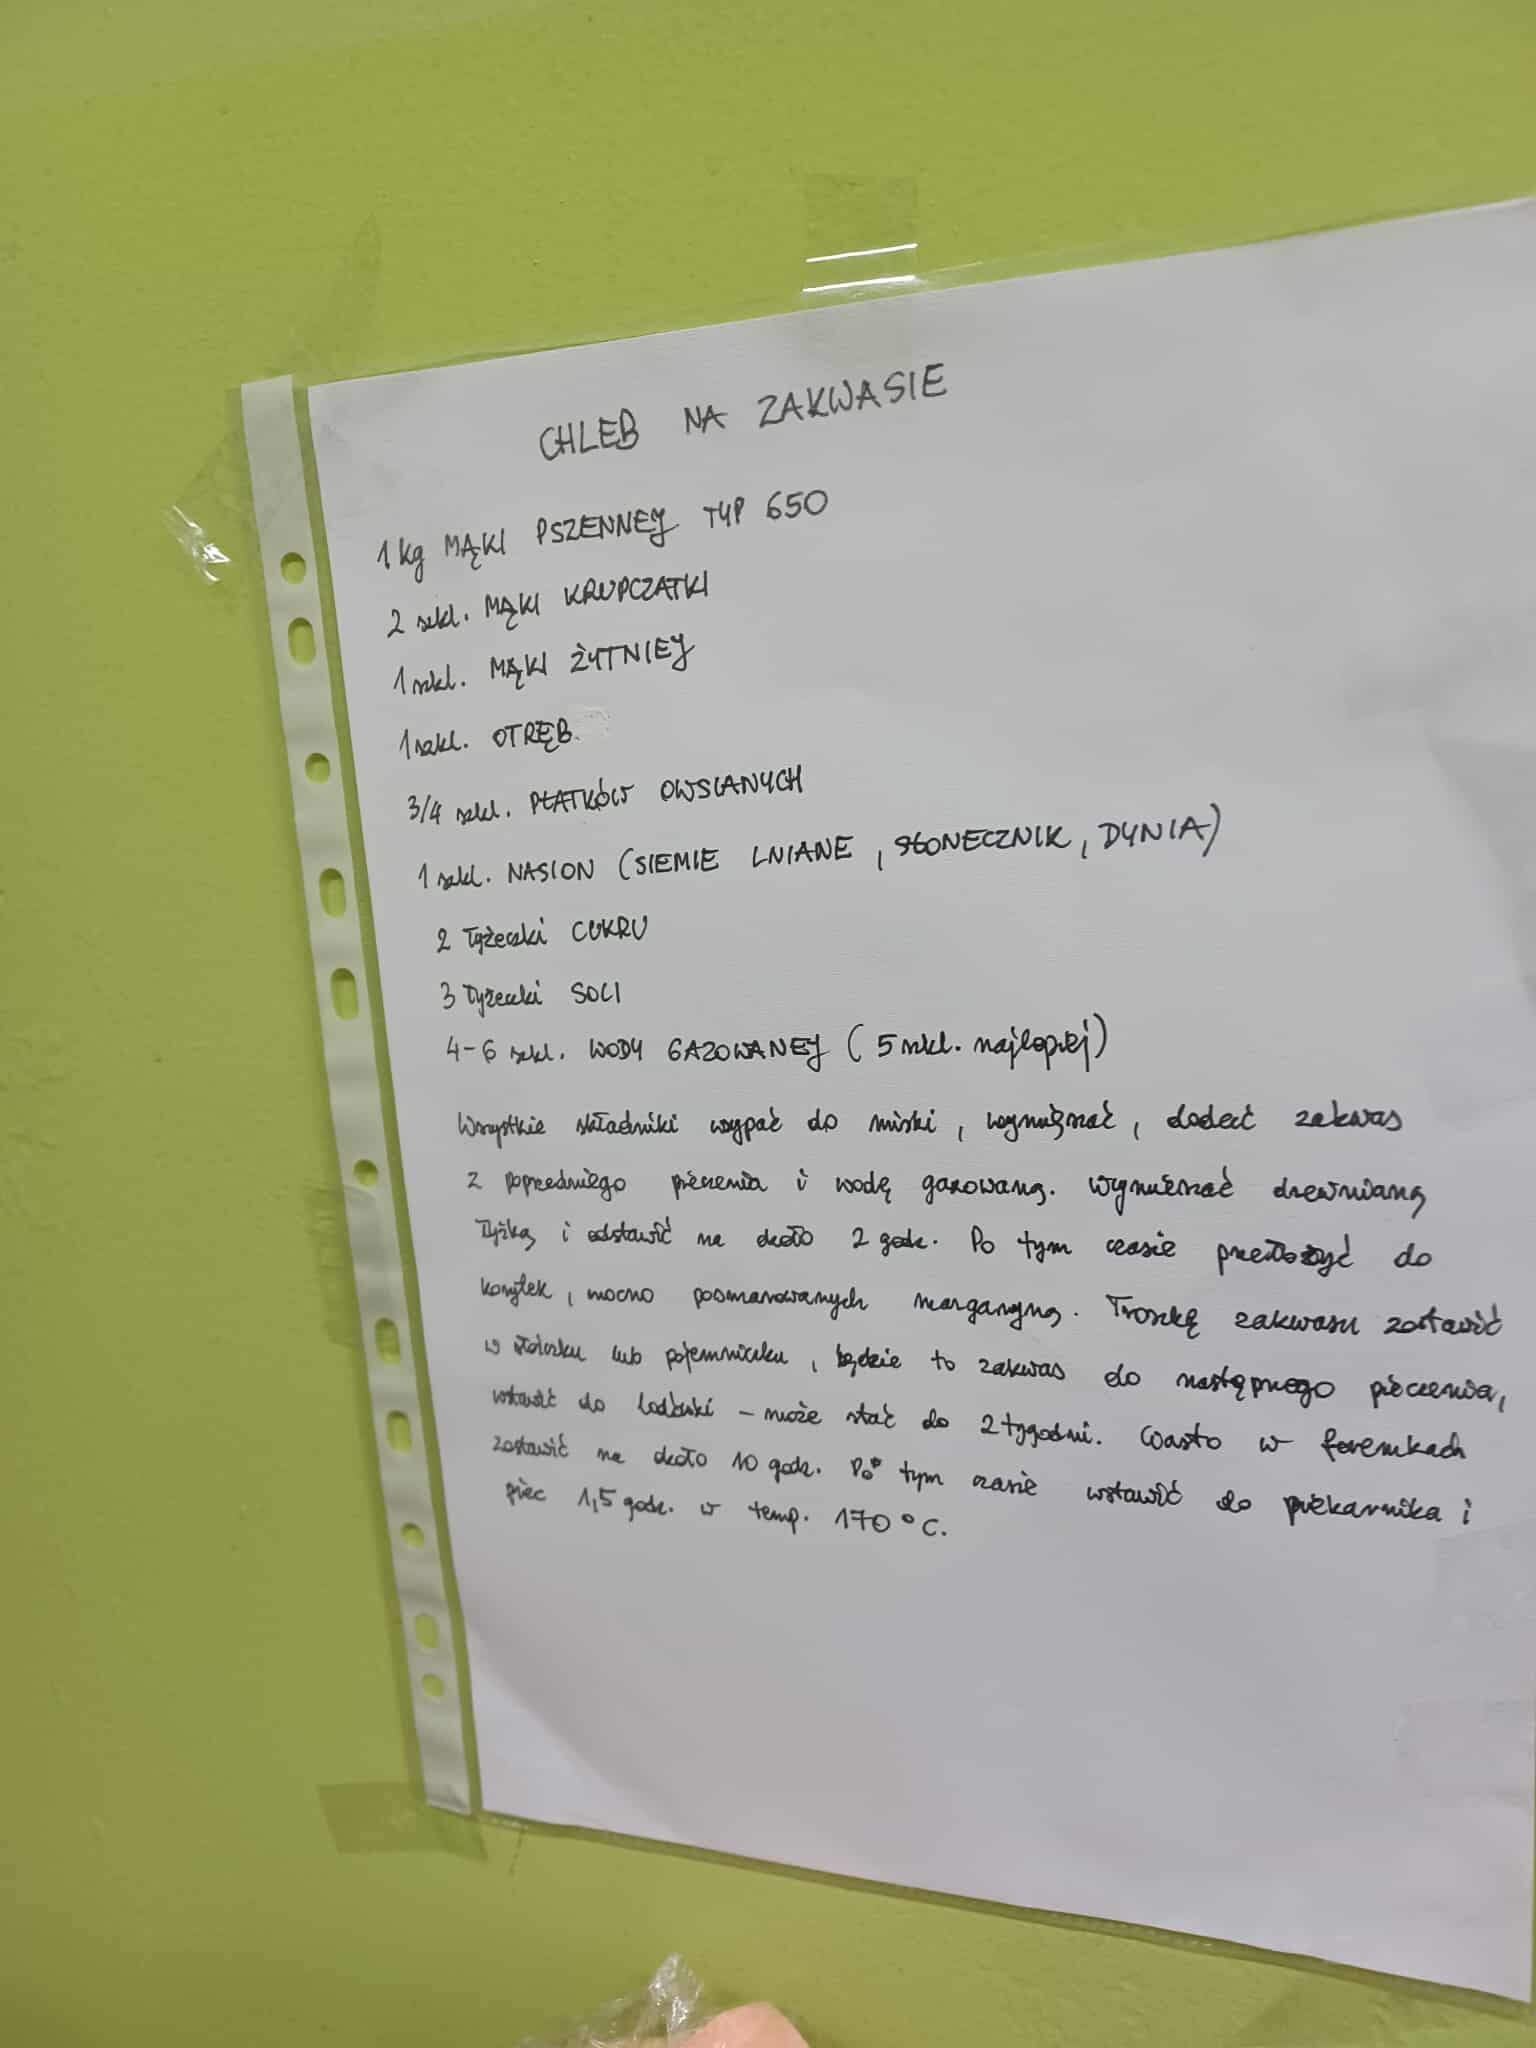 CHLEB NA ZAKWASIE
1 kg MĄKI PSZENNEJ TYP 650
2 szkl. MĄKI KRUPCZATKI
1 szkl. MĄKI ŻYTNIEJ
1 szkl. OTRĘB
3/4 szkl. PŁATKÓW OWSIANYCH
1 szkl. NASION (SIEMIE LNIANE, SŁONECZNIK, DYNIA)
2 łyżeczki CUKRU
3 łyżeczki SOLI
4-6 szkl. WODY GAZOWANEJ (5 szkl. najlepiej)
Wszystkie składniki wsypać do miski, wymieszać, dodać zakwas
z poprzedniego pieczenia i wodę gazowaną. Wymieszać drewnianą
łyżką i odstawić na około 2 godz. Po tym czasie przełożyć do
korytek, mocno posmarowanych margaryną. Troszkę zakwasu zostawić
w słoiczku lub pojemniczku, będzie to zakwas do następnego pieczenia,
wstawić do lodówki - może stać do 2 tygodni. Ciasto w foremkach
zostawić na około 10 godz. Po tym czasie wstawić do piekarnika i
piec 1,5 godz. w temp. 170°C.